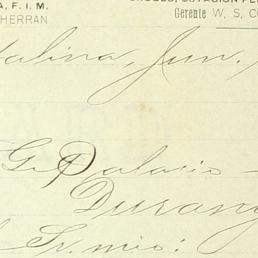 A, F. I. M.
HERRAN
Gerente W. S. Co
alina, Jun.
G. Palacio
Durang
Sr. mio: